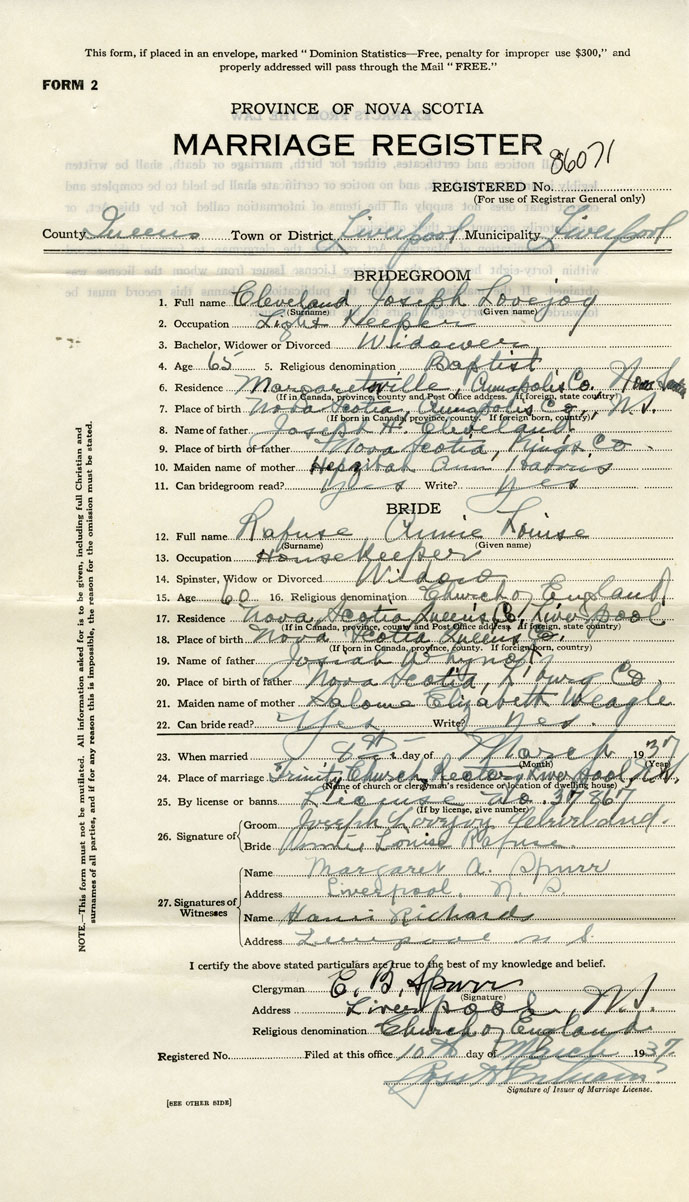 This form, if placed in an envelope, marked "Dominion Statistics—Free, penalty for improper use $300," and
properly addressed will pass through the Mail "FREE."
FORM 2
PROVINCE OF NOVA SCOTIA
MARRIAGE REGISTER
86071
REGISTERED No.
(For use of Registrar General only)
County Queens Town or District Liverpool Municipality Liverpool
BRIDEGROOM
1. Full name Cleveland Joseph Lovejoy
(Surname) (Given name)
2. Occupation Light Keeper
3. Bachelor, Widower or Divorced Widower
4. Age 65 5. Religious denomination Baptist
6. Residence Margaretsville, Annapolis Co. Nova Scotia
(If in Canada, province, county and Post Office address. If foreign, state country)
7. Place of birth Nova Scotia, Annapolis Co., N.S.
(If born in Canada, province, county. If foreign born, country)
8. Name of father Joseph H. Cleveland
9. Place of birth of father Nova Scotia, Kings Co.
10. Maiden name of mother Ann Harris
11. Can bridegroom read? Yes Write? Yes
BRIDE
12. Full name Rafuse, Annie Louise
(Surname) (Given name)
13. Occupation Housekeeper
14. Spinster, Widow or Divorced Widow
15. Age 60 16. Religious denomination Church of England
17. Residence Nova Scotia Queens Co. Liverpool
(If in Canada, province, county and Post Office address. If foreign, state country)
18. Place of birth Nova Scotia Queens Co.
(If born in Canada, province, county. If foreign born, country)
19. Name of father Josiah Whynot
20. Place of birth of father Nova Scotia, L'burg Co.
21. Maiden name of mother Salome Elizabeth Weagle
22. Can bride read? Yes Write? Yes.
23. When married 8th day of March 1937
(Month) (Year)
24. Place of marriage Trinity Church Rectory Liverpool N.S.
(Name of church or clergyman's residence or location of dwelling house)
25. By license or banns License No. 37867
(If by license, give number)
26. Signature of
Groom Joseph Lovejoy Cleveland.
Bride Annie Louise Rafuse
27. Signatures of Witnesses
Name Margaret A. Spurr
Address Liverpool, N. S.
Name Richards
Address Liverpool N S.
I certify the above stated particulars are true to the best of my knowledge and belief.
Clergyman E. B. Spurr
(Signature)
Address Liverpool, N.S.
Religious denomination Church of England
Registered No. Filed at this office 10th day of March 1937
Signature of Issuer of Marriage License.
[SEE OTHER SIDE]
NOTE.—This form must not be mutilated. All information asked for is to be given, including full Christian and
surnames of all parties, and if for any reason this is impossible, the reason for the omission must be stated.